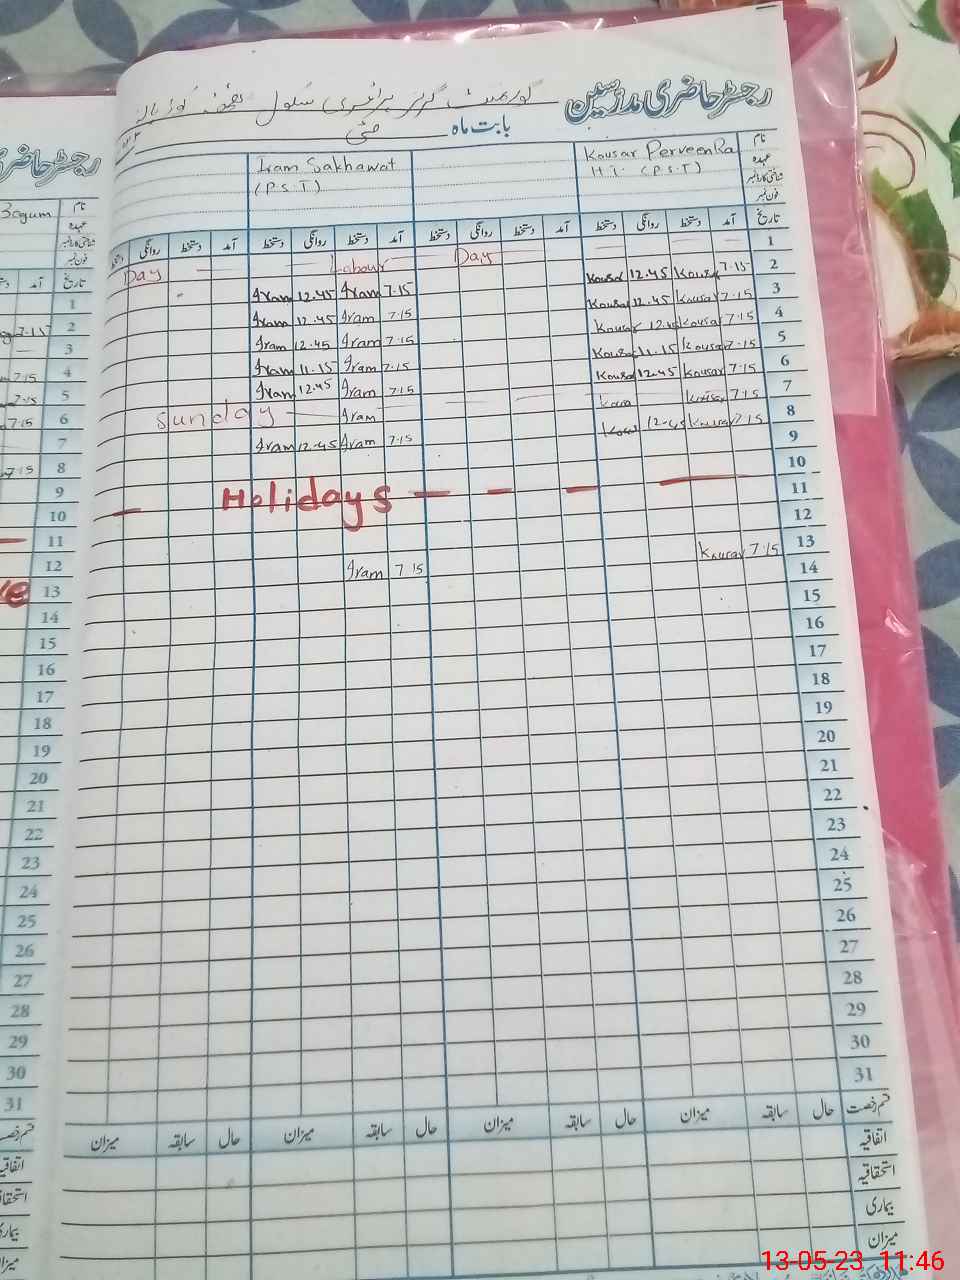 رجسٹر حاضری مدرسین گورنمنٹ گرلز پرائمری سکول
بابت ماہ مئی
نام Kousar Perveen Ra Iram Sakhawat
عہدہ H.T. (P.S.T) (P.S.T)
شناختی کارڈ نمبر
فون نمبر
تاریخ آمد دستخط روانگی دستخط آمد دستخط روانگی دستخط آمد دستخط روانگی دستخط آمد دستخط روانگی دستخط
1 Day Labour Day
2 7.15 Kousar 12.45 Kousar 7.15 Iram 12.45 Iram
3 7.15 Kousar 12.45 Kousar 7.15 Iram 12.45 Iram
4 7.15 Kousar 12.45 Kousar 7.15 Iram 12.45 Iram
5 7.15 Kousar 11.15 Kousar 7.15 Iram 11.15 Iram
6 7.15 Kousar 12.45 Kousar 7.15 Iram 12.45 Iram
7 7.15 Kousar Iram Sunday
8 7.15 Kousar 12.45 7.15 Iram 12.45 Iram
9
10
11 Holidays
12
13 7.15 Kousar 7.15 Iram
14
15
16
17
18
19
20
21
22
23
24
25
26
27
28
29
30
31
قسم رخصت حال سابقہ میزان حال سابقہ میزان حال سابقہ میزان حال سابقہ میزان
اتفاقیہ
استحقاقیہ
بیماری
میزان
رجسٹر حاضری
Begum
نام
عہدہ
شناختی کارڈ نمبر
فون نمبر
تاریخ آمد
1
2 7.15
3
4 7.15
5 7.15
6 7.15
7
8 7.15
9
10
11
12
13
14
15
16
17
18
19
20
21
22
23
24
25
26
27
28
29
30
31
13-05-23 11:46